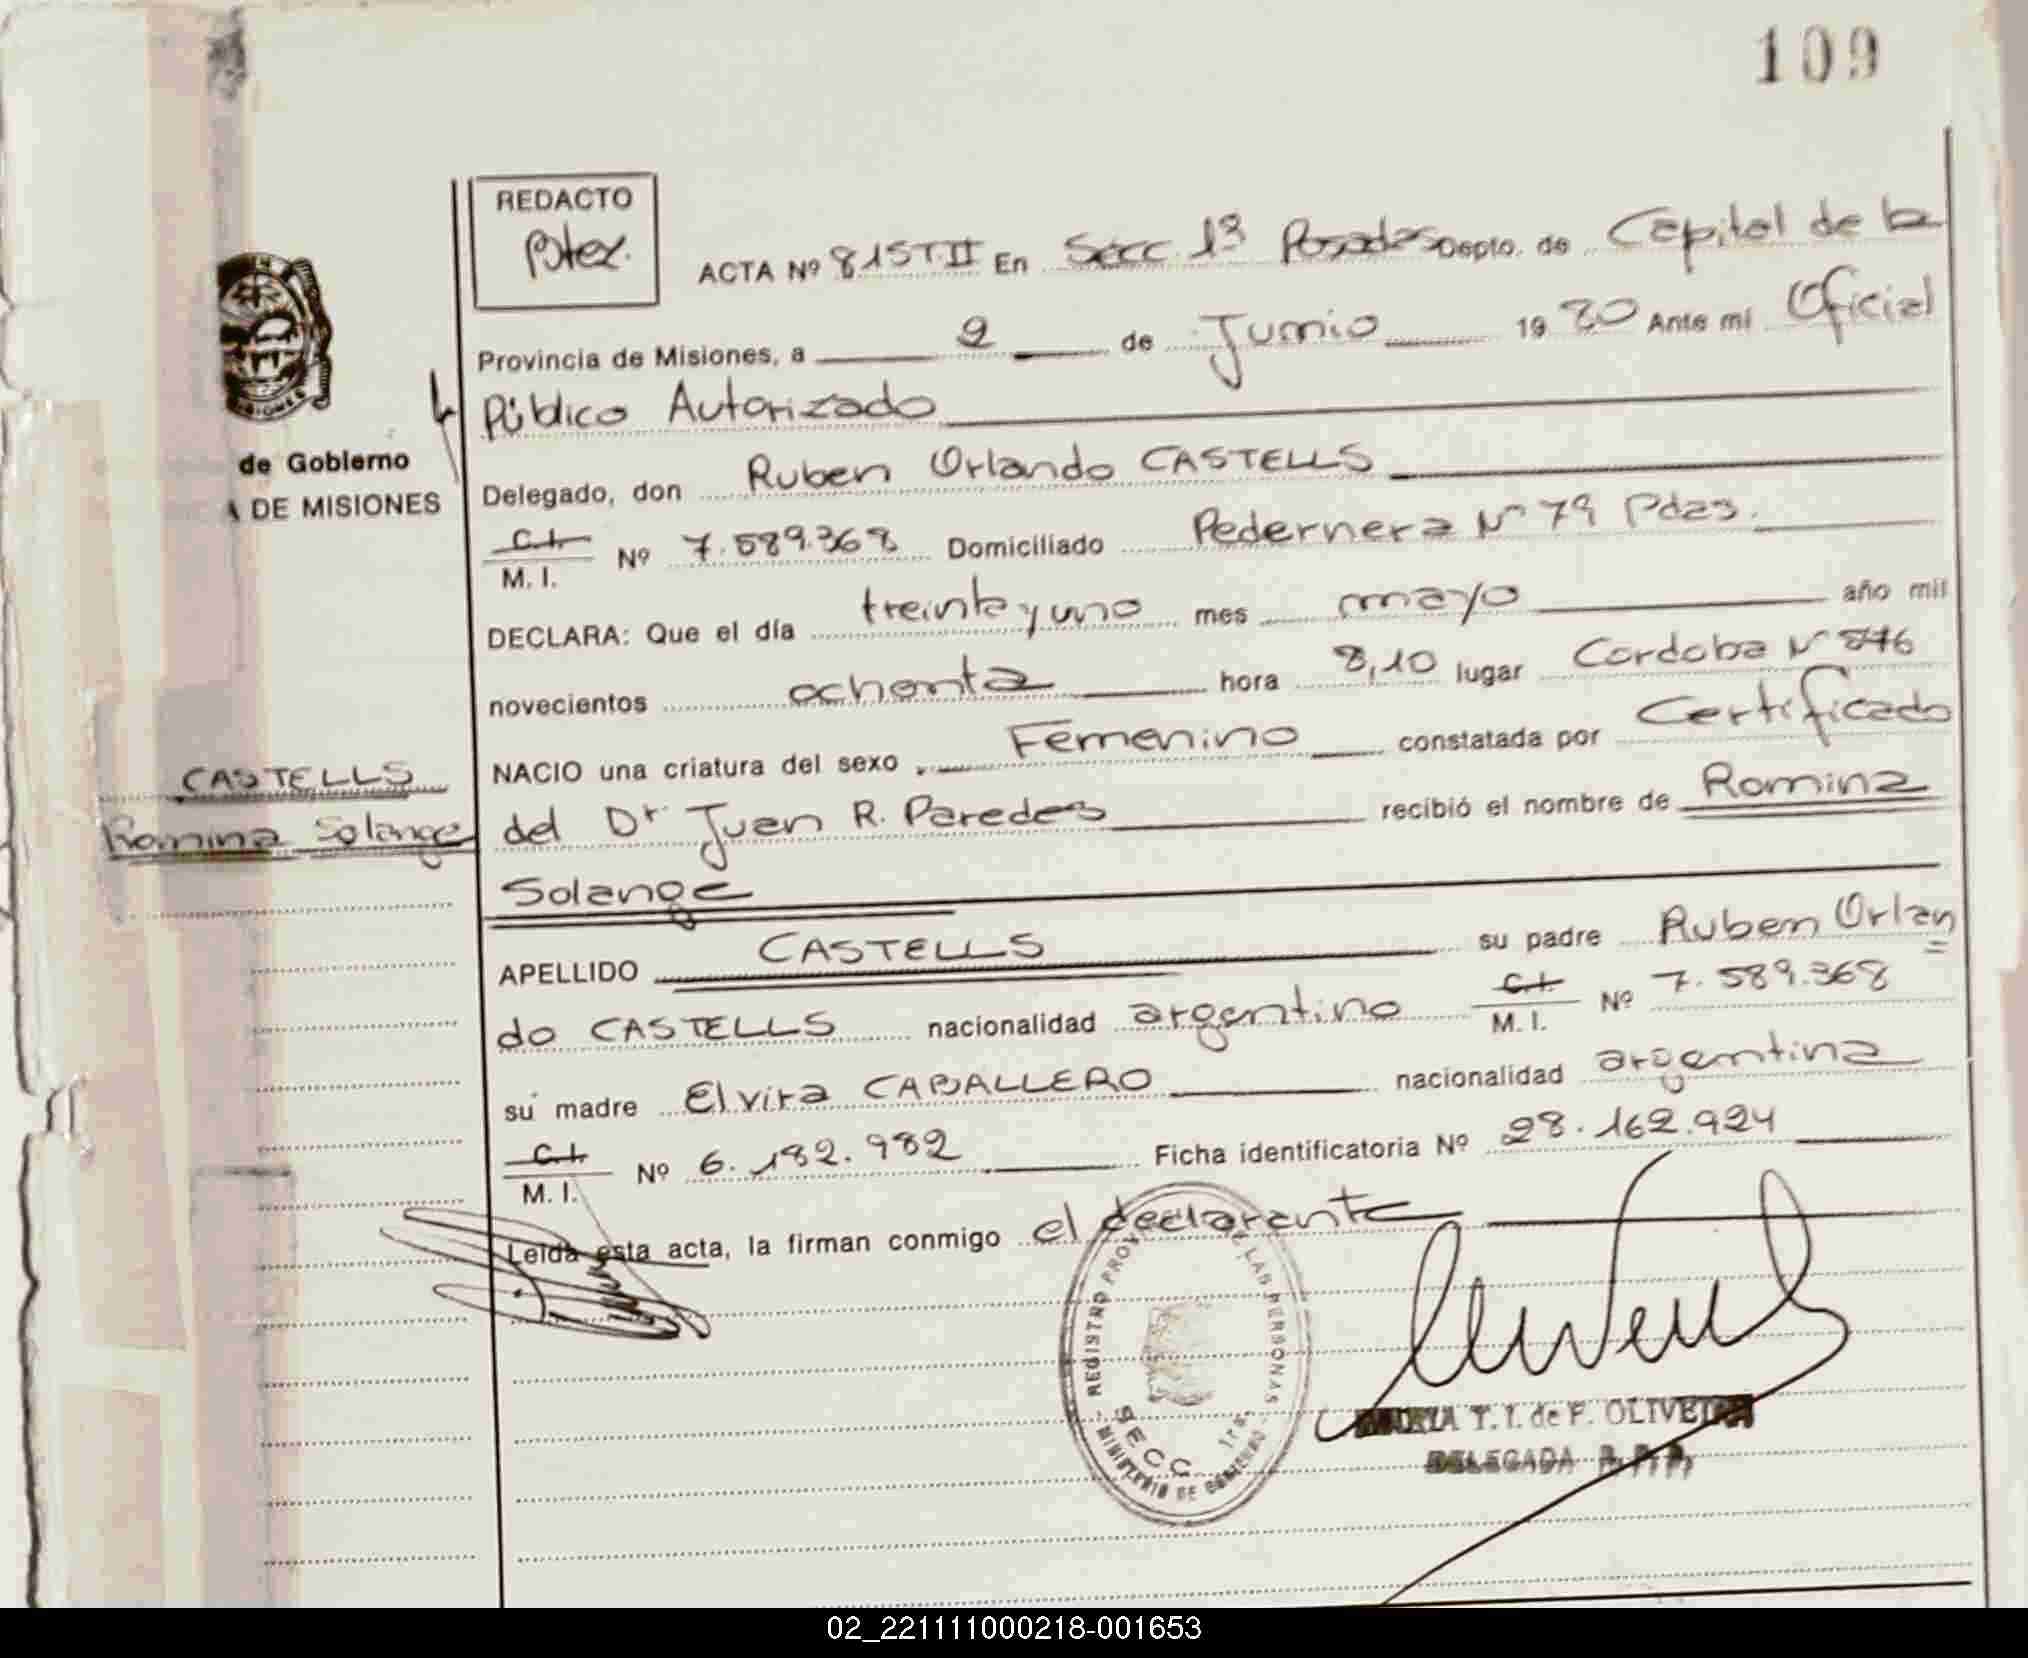 109
REDACTO
ACTA Nº 815 T.II En Secc. 1ª Posadas Depto. de Capital de la
Provincia de Misiones, a 2 de Junio 1980 Ante mi Oficial
Público Autorizado
de Gobierno
Delegado, don Ruben Orlando CASTELLS
A DE MISIONES
C.I.
M. I. Nº 7.589.368 Domiciliado Pedernera Nº 79 Pdas.
DECLARA: Que el día treinta y uno mes mayo año mil
novecientos ochenta hora 8,10 lugar Cordoba Nº 876
NACIO una criatura del sexo Femenino constatada por Certificado
CASTELLS
Romina Solange
del Dr Juan R. Paredes recibió el nombre de Romina
Solange
APELLIDO CASTELLS su padre Ruben Orlan
do CASTELLS nacionalidad argentino C.I. M. I. Nº 7.589.368
su madre Elvira CABALLERO nacionalidad argentina
C.I.
M. I. Nº 6.182.982 Ficha identificatoria Nº 28.162.924
Leída esta acta, la firman conmigo el declarante
REGISTRO PROV DE LAS PERSONAS
SECC 1ra.
MINISTERIO DE GOBIERNO
MARIA T. I. de F. OLIVEIRA
DELEGADA R. P. P.
02_221111000218-001653